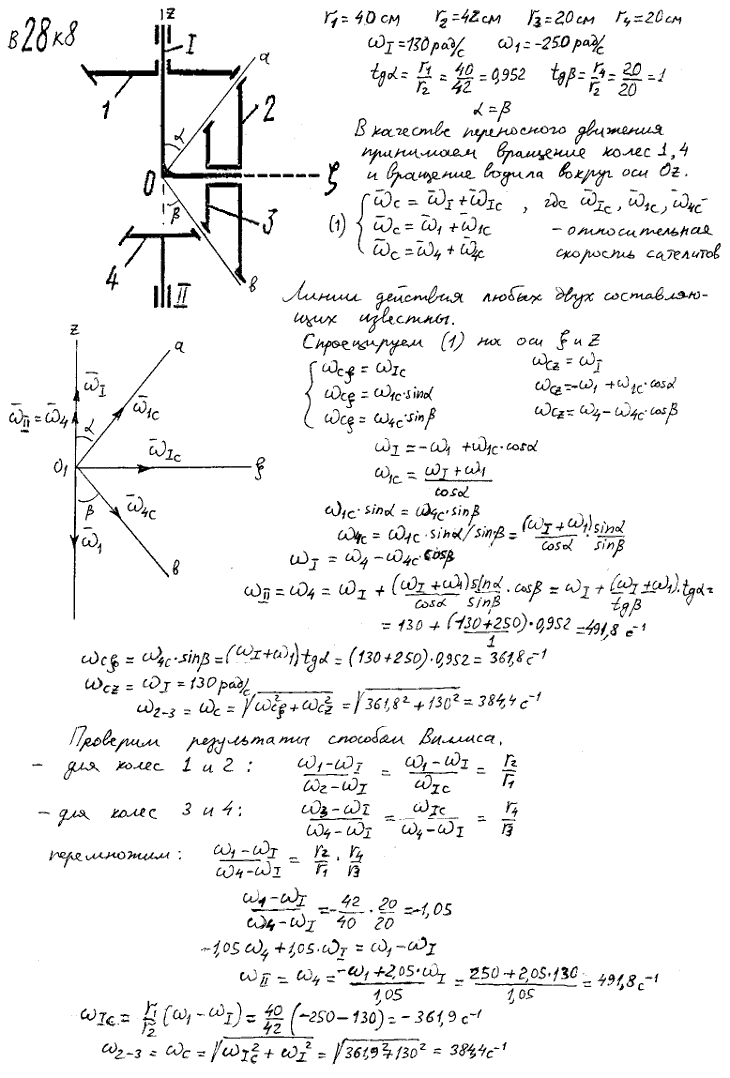 В 28 к 8
r₁ = 40 см r₂ = 42 см r₃ = 20 см r₄ = 20 см
ω_I = 130 рад/с ω₁ = -250 рад/с
tgα = r₁/r₂ = 40/42 = 0,952 tgβ = r₄/r₂ = 20/20 = 1
α = β
В качестве переносного движения
принимаем вращение колес 1, 4
и вращение водила вокруг оси Oz.
(1) { ω̄_C = ω̄_I + ω̄_IC , где ω̄_IC, ω̄_1C, ω̄_4C -
ω̄_C = ω̄₁ + ω̄_1C - относительная
ω̄_C = ω̄₄ + ω̄_4C скорость сателитов
z
I
a
1
α
2
O
ξ
β
3
4
II
в
Линии действия любых двух составляю-
щих известны.
Спроецируем (1) на оси ξ и z
{ ω_Cξ = ω_IC ω_Cz = ω_I
ω_Cξ = ω_1C·sinα ω_Cz = -ω₁ + ω_1C·cosα
ω_Cξ = ω_4C·sinβ ω_Cz = ω₄ - ω_4C·cosβ
z
a
ω̄_I
ω̄_II = ω̄₄
α
ω̄_1C
ω̄_IC
O₁
ξ
β
ω̄_4C
ω̄₁
в
ω_I = -ω₁ + ω_1C·cosα
ω_1C = (ω_I + ω₁)/cosα
ω_1C·sinα = ω_4C·sinβ
ω_4C = ω_1C·sinα/sinβ = (ω_I + ω₁)/cosα · sinα/sinβ
ω_I = ω₄ - ω_4C·cosβ
ω_II = ω₄ = ω_I + (ω_I + ω₁)/cosα · sinα/sinβ · cosβ = ω_I + (ω_I + ω₁)/tgβ · tgα =
= 130 + (130 + 250)/1 · 0,952 = 491,8 с⁻¹
ω_Cξ = ω_4C·sinβ = (ω_I + ω₁)tgα = (130 + 250)·0,952 = 361,8 с⁻¹
ω_Cz = ω_I = 130 рад/с
ω₂₋₃ = ω_C = √(ω²_Cξ + ω²_Cz) = √(361,8² + 130²) = 384,4 с⁻¹
Проверим результаты способом Виллиса.
- для колес 1 и 2: (ω₁ - ω_I)/(ω₂ - ω_I) = (ω₁ - ω_I)/ω_IC = r₂/r₁
- для колес 3 и 4: (ω₃ - ω_I)/(ω₄ - ω_I) = ω_IC/(ω₄ - ω_I) = r₄/r₃
перемножим: (ω₁ - ω_I)/(ω₄ - ω_I) = r₂/r₁ · r₄/r₃
(ω₁ - ω_I)/(ω₄ - ω_I) = -42/40 · 20/20 = -1,05
-1,05ω₄ + 1,05·ω_I = ω₁ - ω_I
ω_II = ω₄ = (-ω₁ + 2,05·ω_I)/1,05 = (250 + 2,05·130)/1,05 = 491,8 с⁻¹
ω_IC = r₁/r₂ (ω₁ - ω_I) = 40/42 (-250 - 130) = -361,9 с⁻¹
ω₂₋₃ = ω_C = √(ω_IC² + ω_I²) = √(361,9² + 130²) = 384,4 с⁻¹